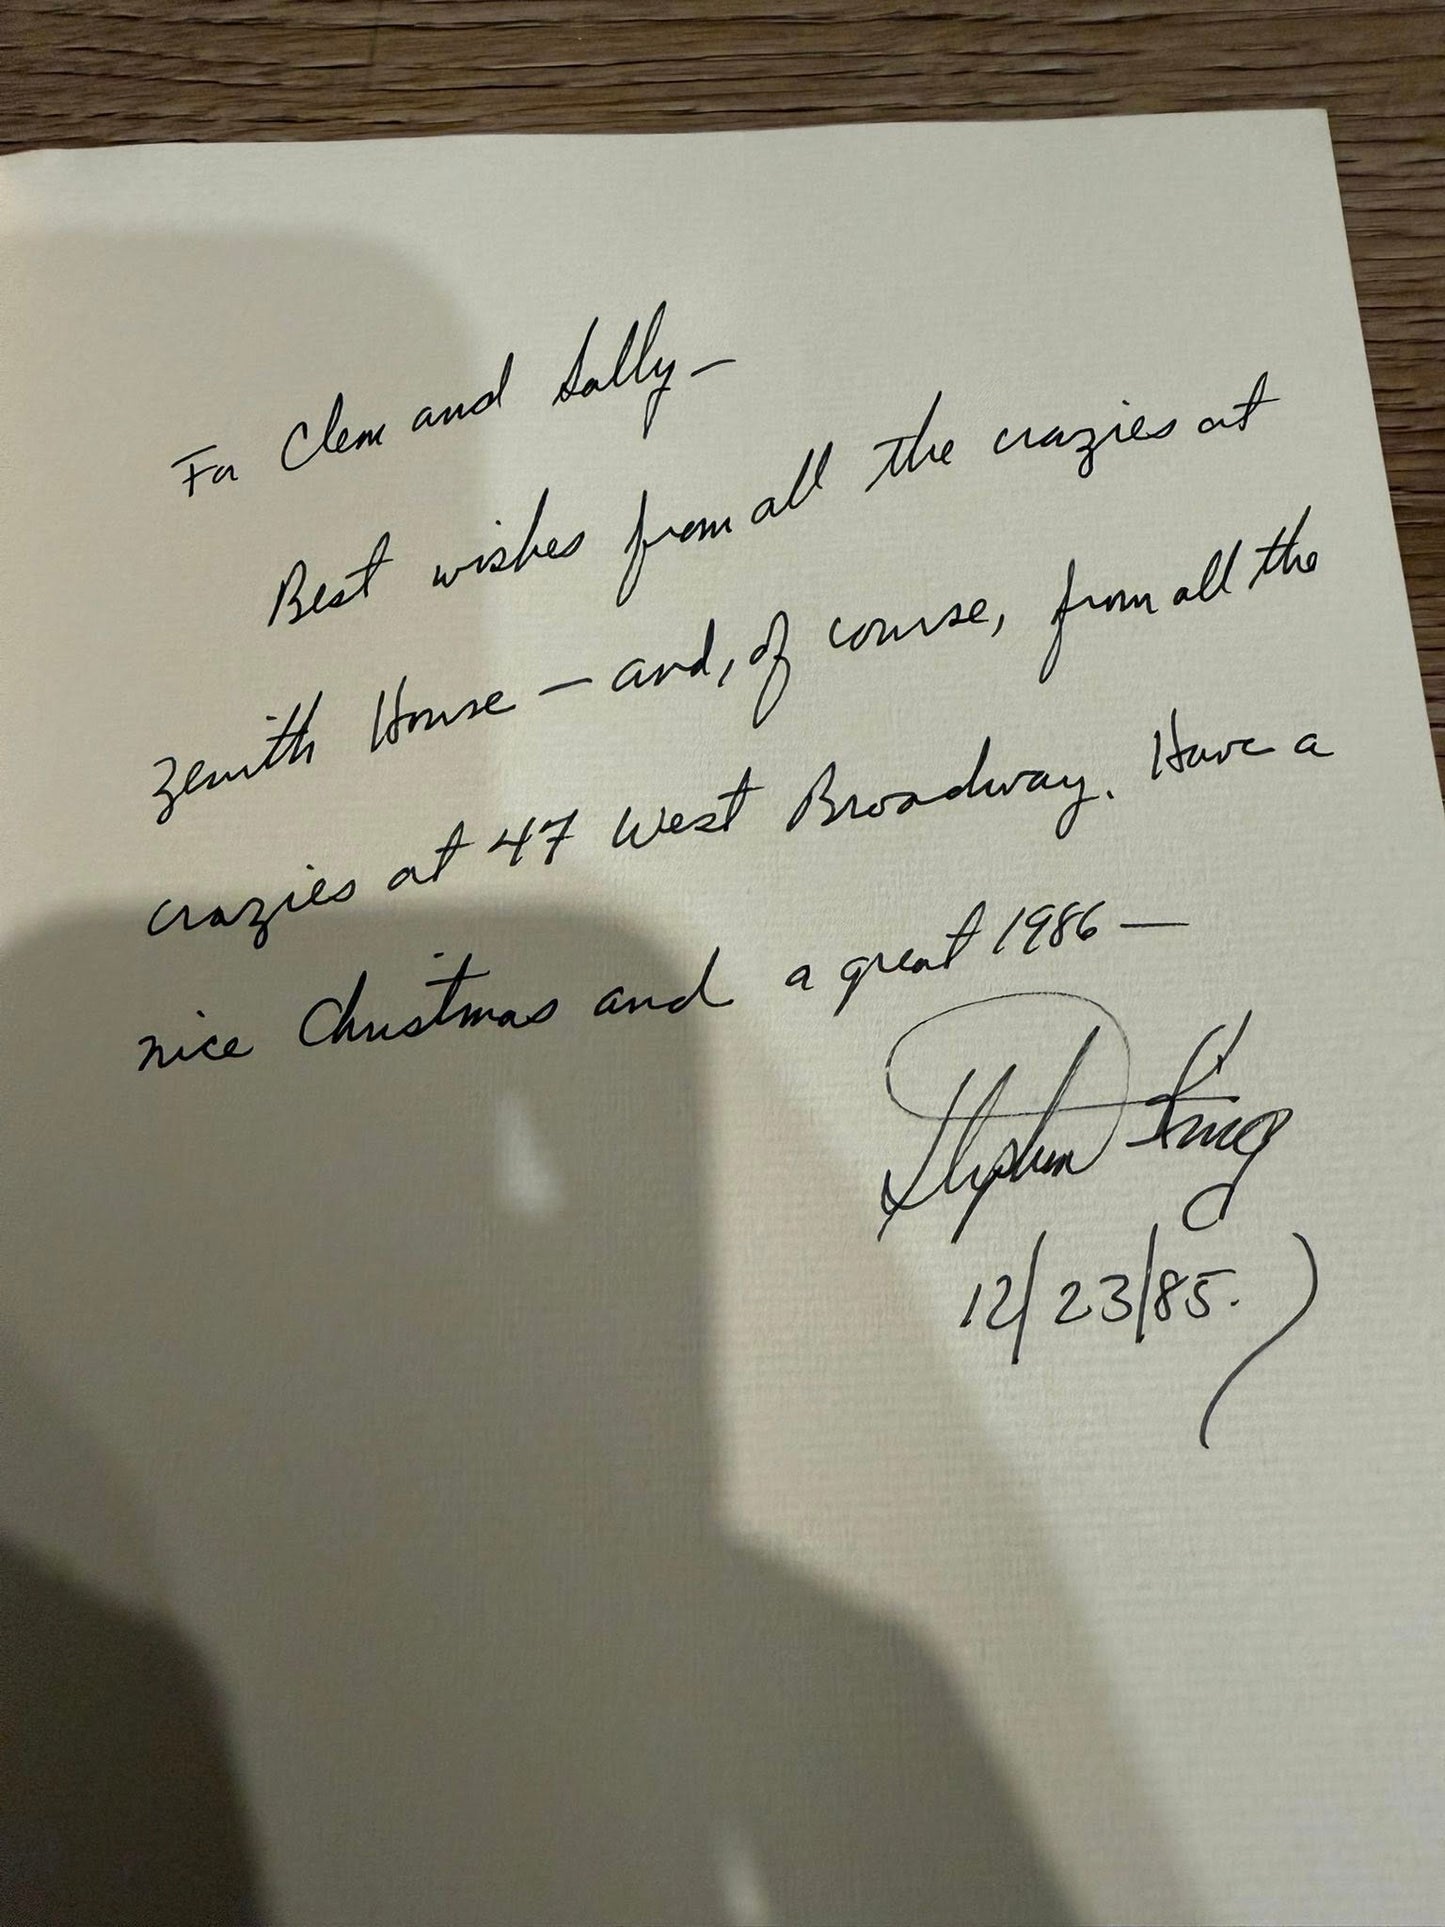 For Clem and Sally —
Best wishes from all the crazies at
Zenith House — and, of course, from all the
crazies at 47 West Broadway. Have a
nice Christmas and a great 1986 —
Stephen King
12/23/85.